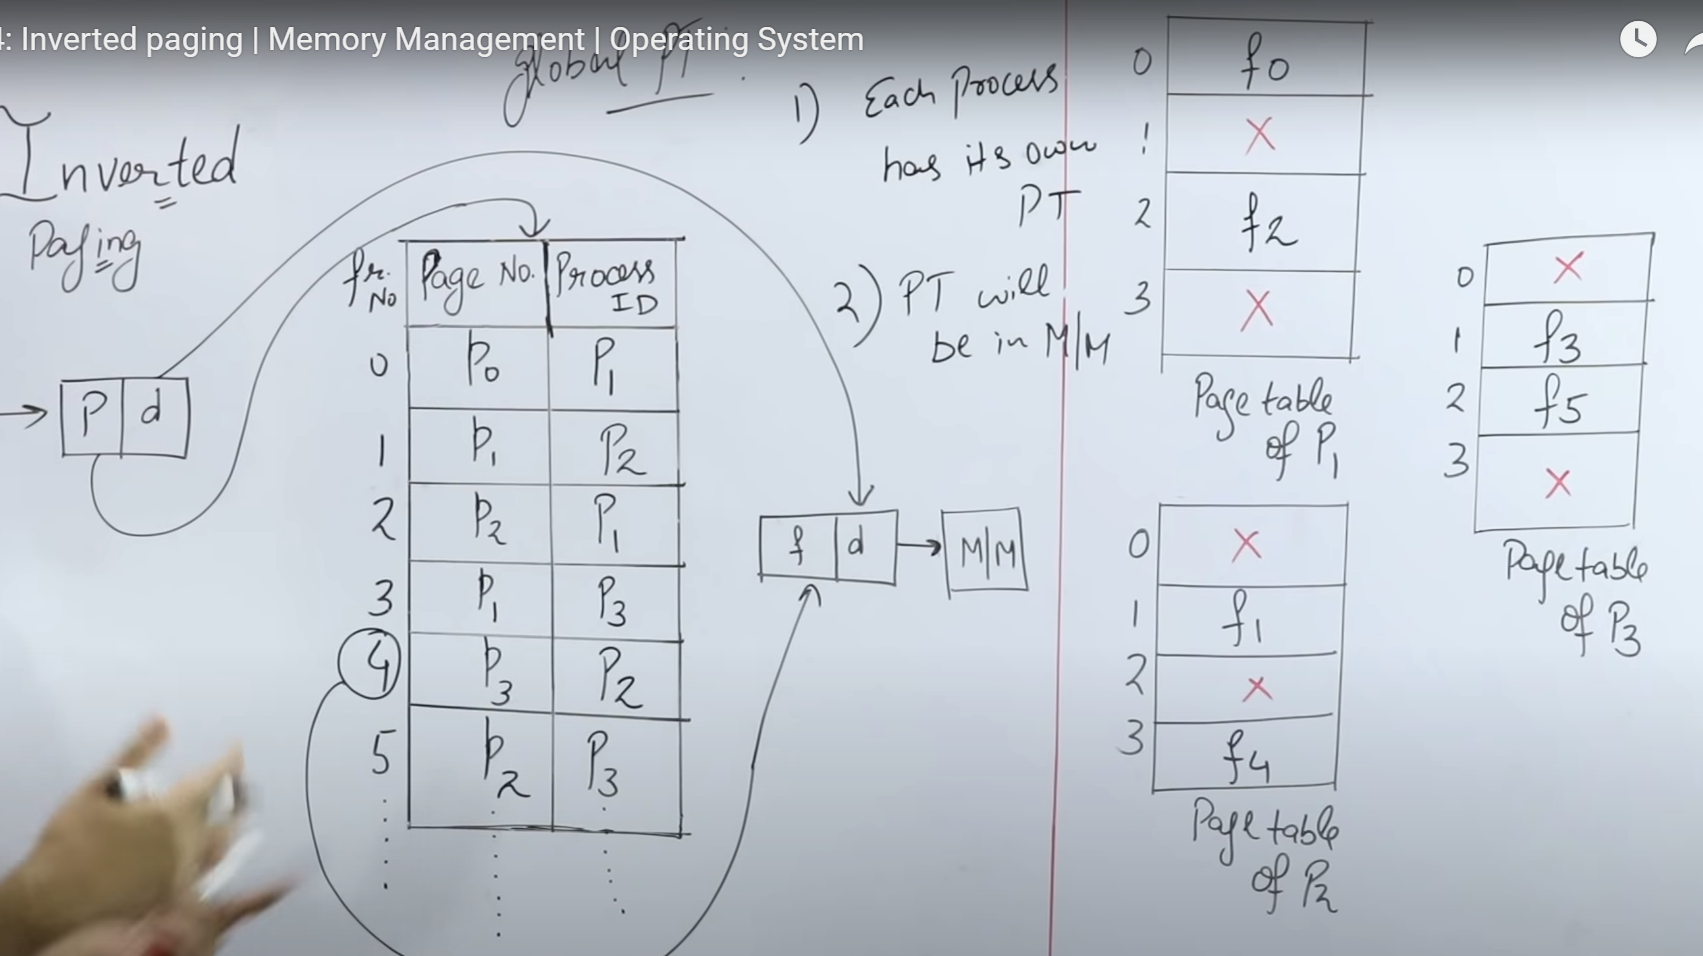 4: Inverted paging | Memory Management | Operating System
global PT
Inverted
Paging
P d
fr. No Page No. Process ID
0 P0 P1
1 P1 P2
2 P2 P1
3 P1 P3
4 P3 P2
5 P2 P3
f d
M/M
1) Each Process
has its own
PT
2) PT will
be in M/M
0 f0
1 X
2 f2
3 X
Page table
of P1
0 X
1 f1
2 X
3 f4
Page table
of P2
0 X
1 f3
2 f5
3 X
Page table
of P3